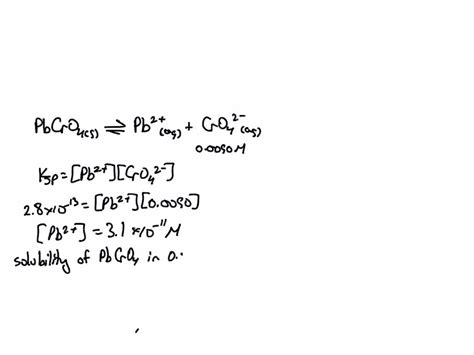 PbCrO₄(s) ⇌ Pb²⁺(aq) + CrO₄²⁻(aq)
0.0090M
Ksp = [Pb²⁺][CrO₄²⁻]
2.8×10⁻¹³ = [Pb²⁺][0.0090]
[Pb²⁺] = 3.1×10⁻¹¹ M
solubility of PbCrO₄ in 0..